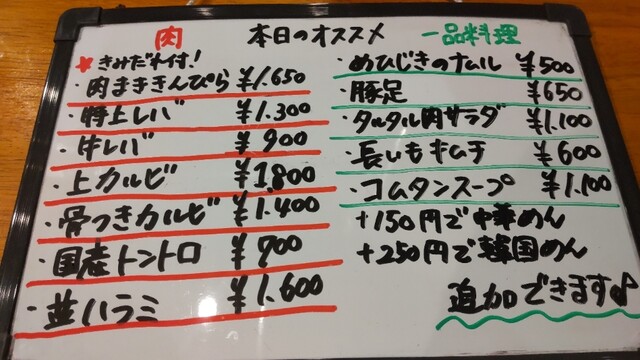 肉 本日のオススメ 一品料理
★きみだれ付!
・肉まききんぴら ¥1.650
・特上レバ ¥1.300
・牛レバ ¥900
・上カルビ ¥1,800
・骨つきカルビ ¥1.400
・国産トントロ ¥900
・並ハラミ ¥1.600
・めひじきのナムル ¥500
・豚足 ¥650
・タルタル肉サラダ ¥1.100
・長いもキムチ ¥600
・コムタンスープ ¥1.100
+150円で中華めん
+250円で韓国めん
追加できます♪